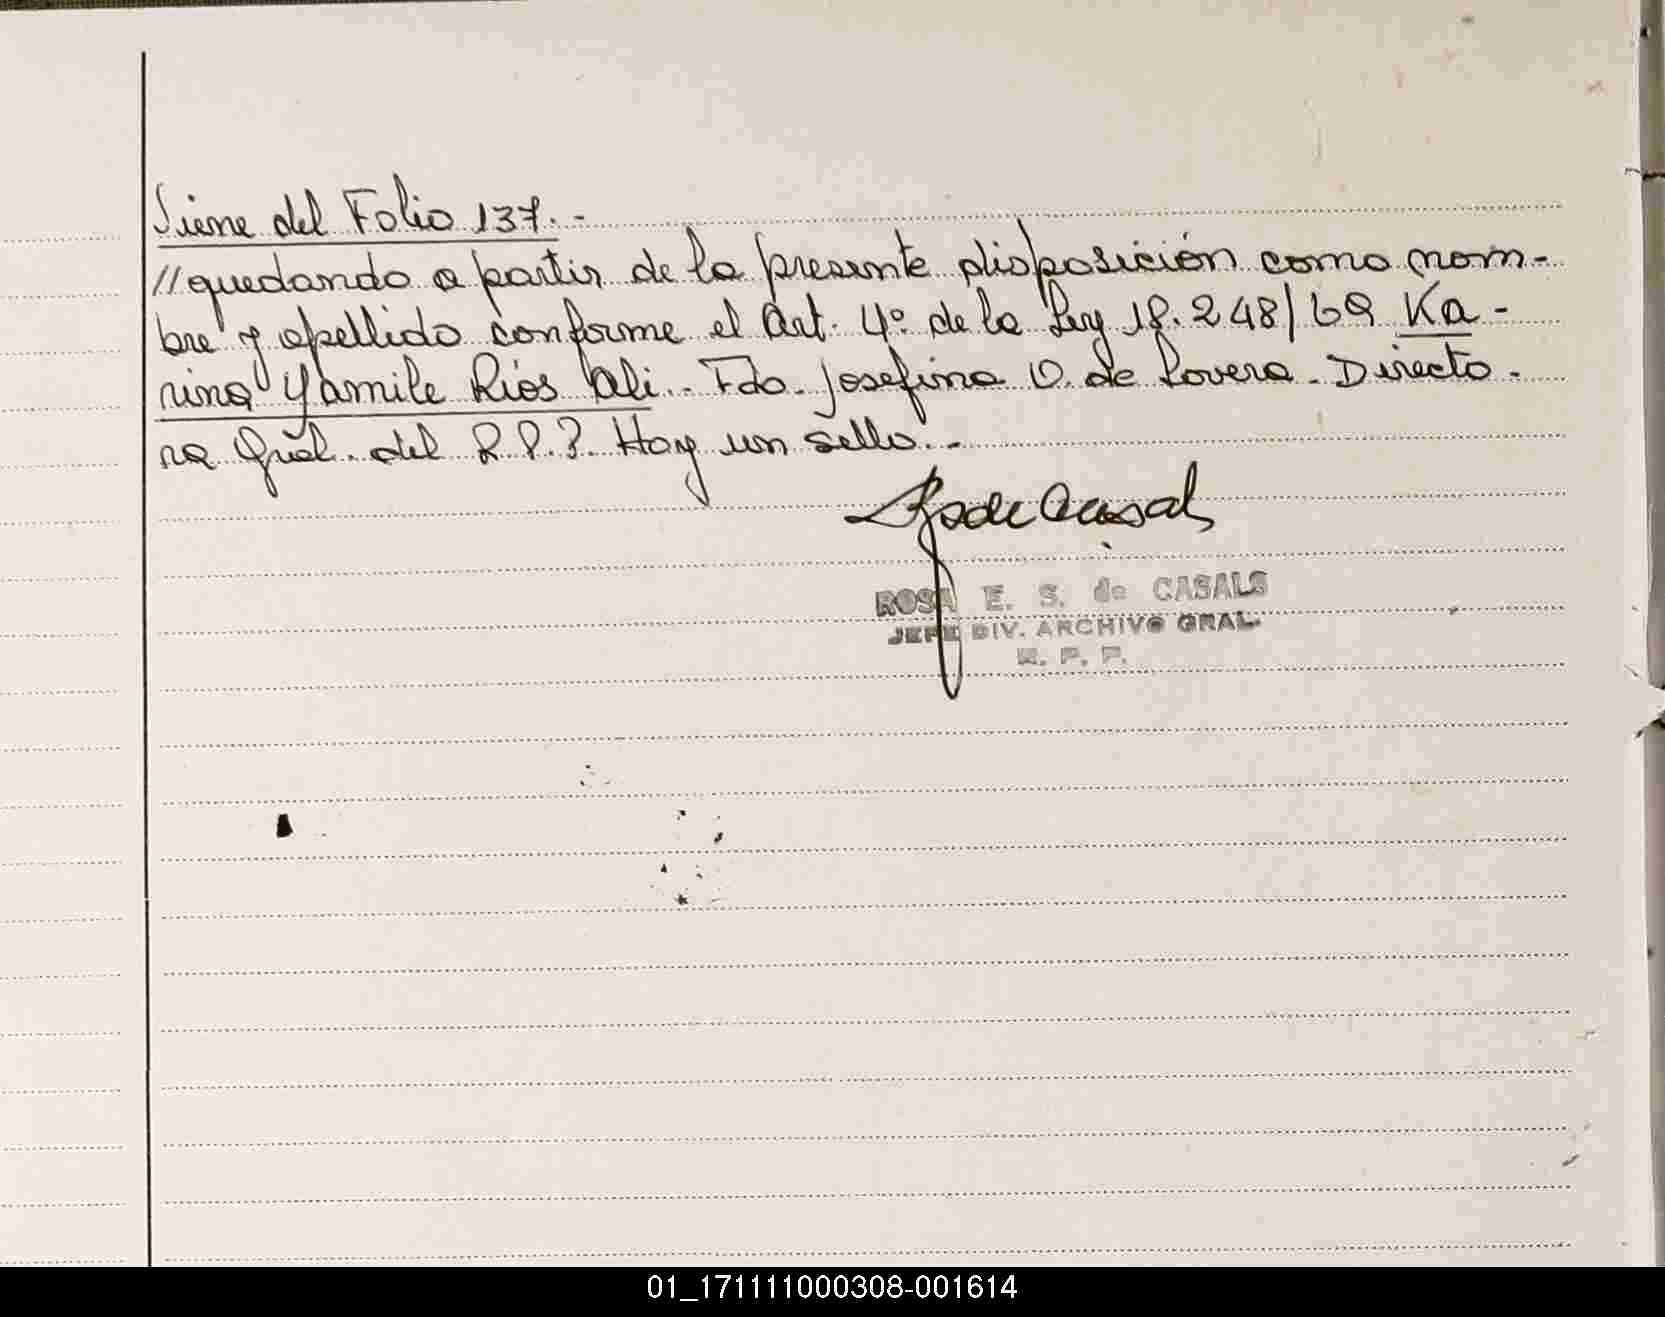 Viene del Folio 137.-
//quedando a partir de la presente disposición como nom-
bre y apellido conforme el Art. 4º de la Ley 18.248/69 Ka-
rina Yamile Ríos Ali.- Fdo. Josefina O. de Lovera. Directo-
ra Gral. del R.P.P. Hay un sello.-
ROSA E. S. de CASALS
JEFE DIV. ARCHIVO GRAL.
R. P. P.
01_171111000308-001614